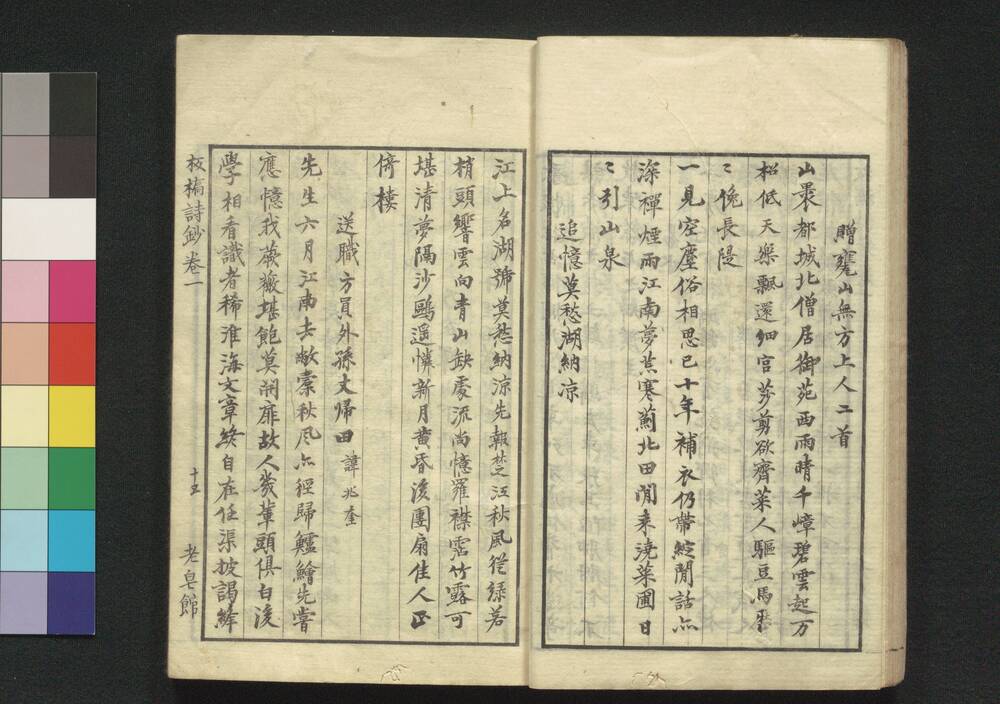 贈甕山無方上人二首
山裹都城北僧居御苑西雨晴千嶂碧雲起万
松低天樂飄還細宮莎剪欲齊菜人驅豆馬歷
〻俛長隄
一見空塵俗相思已十年補衣仍帶綻閒話亦
深禪煙雨江南夢荒寒薊北田閒来澆菜圃日
〻引山泉
追憶莫愁湖納凉
江上名湖號莫愁納涼先報楚江秋風從綠若
梢頭響雲向青山缺處流尚憶羅襟霑竹露可
堪清夢隔沙鷗遥憐新月黄昏後團扇佳人正
倚樓
送職方員外孫丈歸田 諱兆奎
先生六月江南去敝橐秋风亦徑歸鱸鱠先嘗
應憶我蕨薇堪飽莫開扉故人幾輩頭俱白後
學相看識者稀淮海文章終自在任渠披謁絳
板橋詩鈔 卷一 十五 老皂館